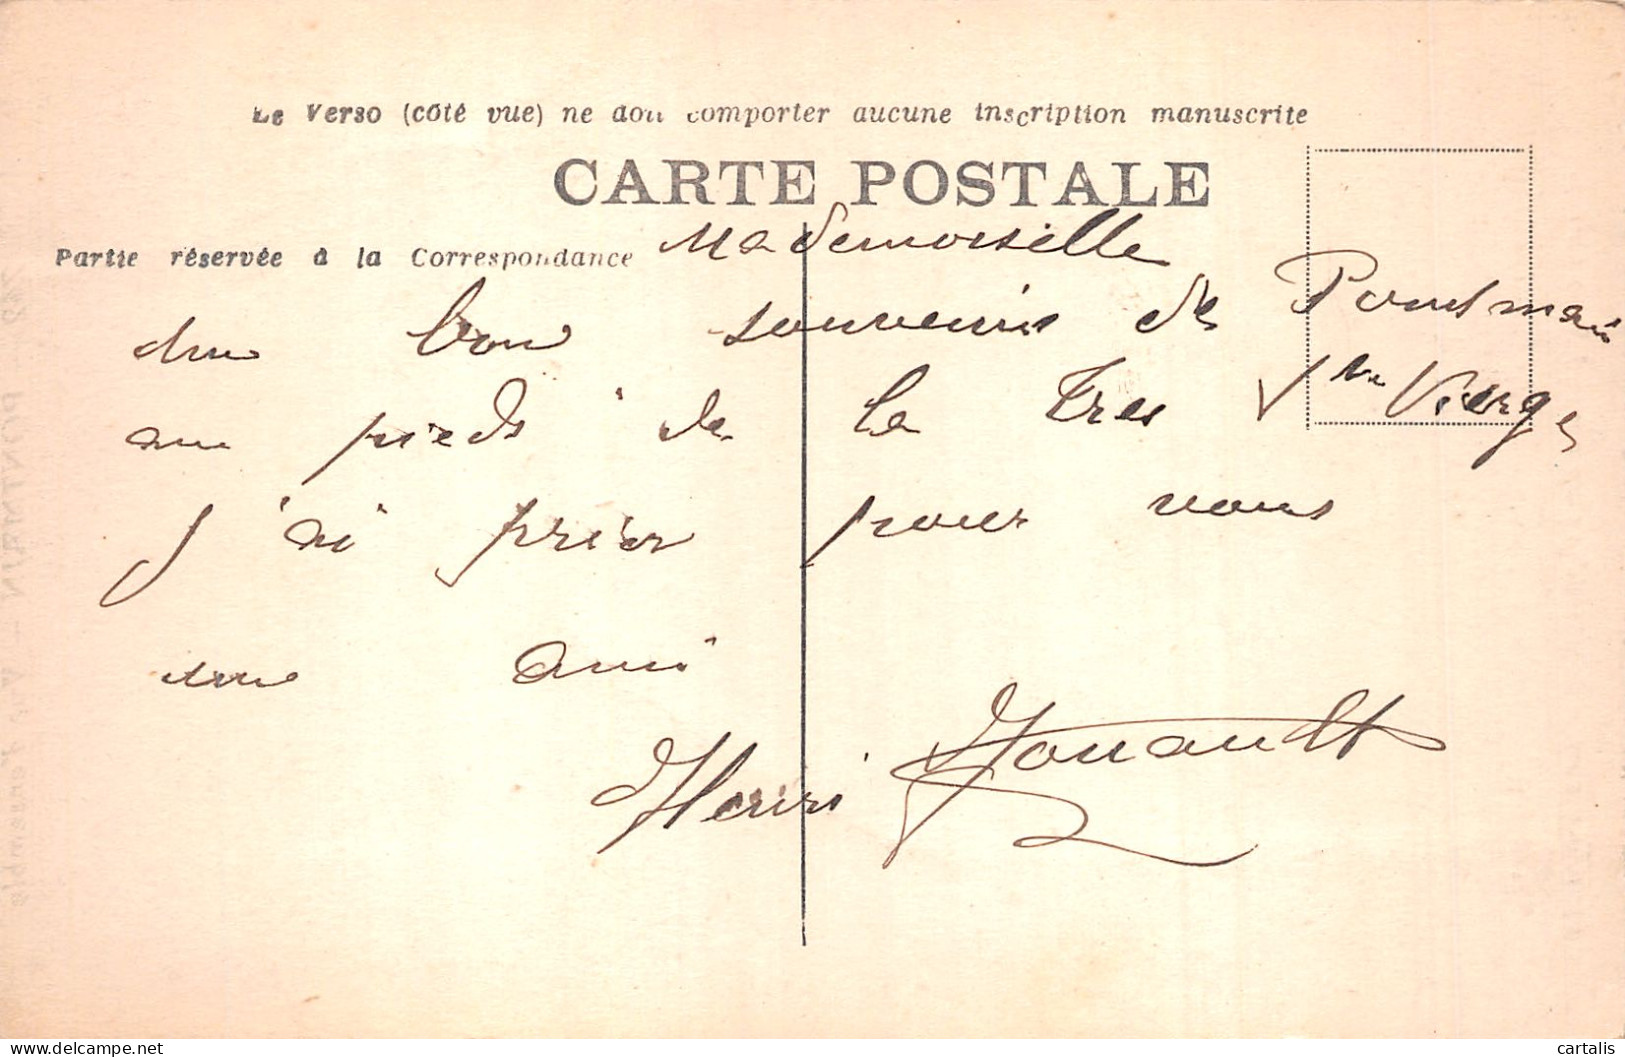 Le Verso (côté vue) ne doit comporter aucune inscription manuscrite
CARTE POSTALE
Partie réservée à la Correspondance
Mademoiselle
un bon souvenir de Pontmain
au pieds de la Tres Ste Vierge
J'ai prier pour vous
un ami
Henri
delcampe.net
cartalis